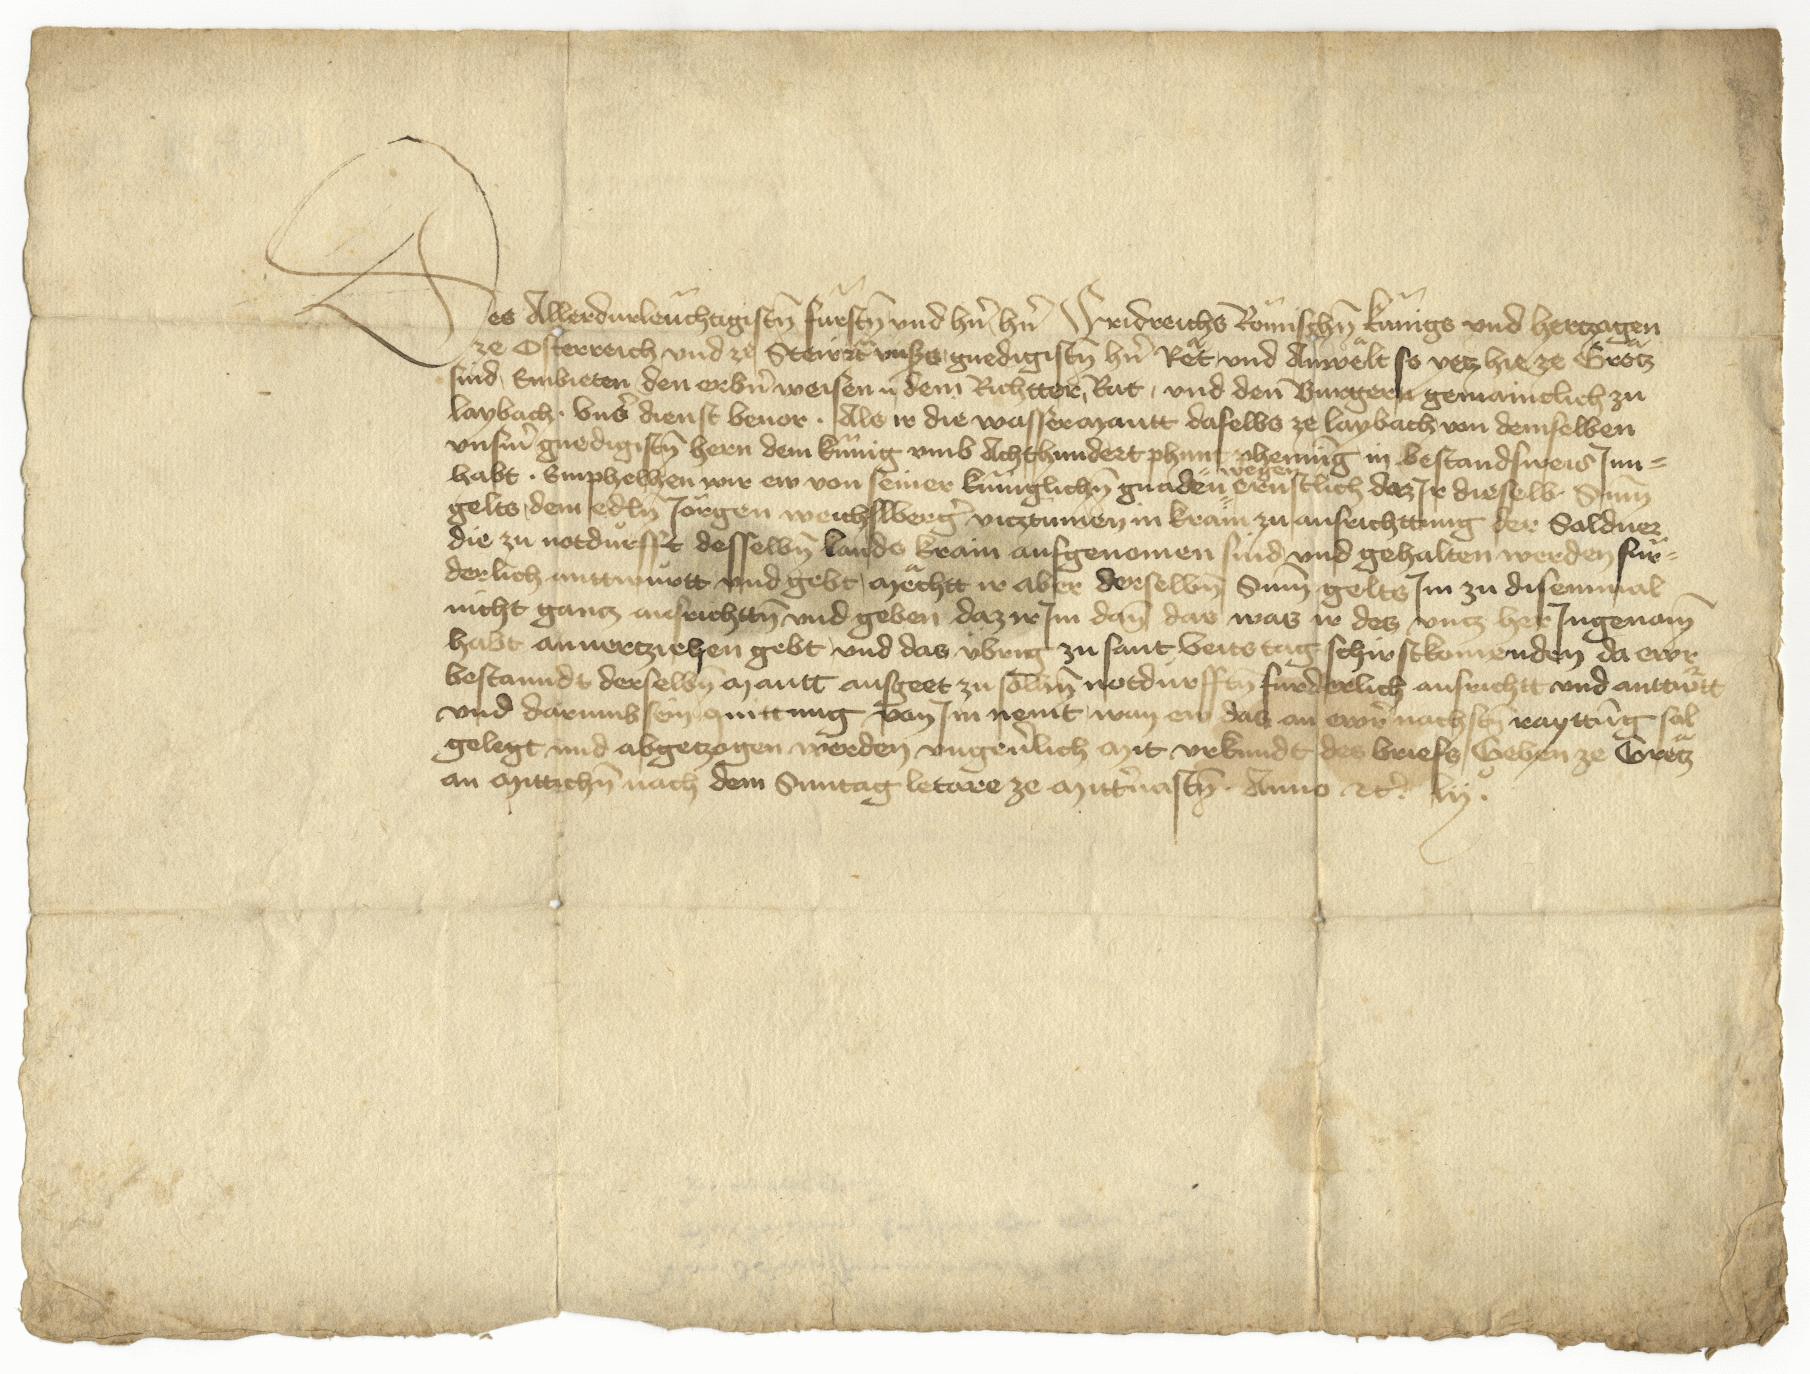 Des Allerdurleuchtigistn̄ fürstn̄ vnd hr̄n hr̄n Fridreichs Römischn̄ künigs vnd hertzogen
ze Osterreich vnd ze Steir ꝛc̄ vnsers gnedigistn̄ hr̄n Rët vnd Anwëlt so yetz hie ze Grëtz
sind Embieten den erbn̄ weisen n dem Richtter, Rat, vnd den Burgern gemainclich zu
laybach. Vnser dienst beuor. Als ir die wassermautt daselbs ze laybach von demselben
vnserm gnedigistn̄ hern dem künig vmb Achthundert phunt phennīg in bestandsweis Inn=
habt. Emphelhen wir ew von seiner küniglichn̄ gnaden wegen ernstlich daz Ir dieselb Sum̄
gelts dem edln̄ Jörgen weichslberger̄ vicztumen in krain zu ausrichttung der Soldner
die zu notdurfft desselbn̄ lands krain aufgenomen sind vnd gehalten werden für=
derlich anttwurtt vnd gebt, mëchtt ir aber derselbn̄ Sum̄ gelts Im zu disemmal
nicht gancz ausrichttn̄ vnd geben daz ir Im dan̄ das was ir des vncz her Ingenom̄
habt anuercziehen gebt vnd das vbrig zu sant Veits tag schirstkomenden da ewr
bestanndt derselbn̄ mautt ausgeet zu soln̄ notdurfftn̄ fürderlich ausrichtt vnd anttwrtt
vnd darumb sein quittung von Im nemt, wan ew das an ewr̄ nachstn̄ rayttūg sol
gelegt und abgetzogen werden vngeuerlich Mit vrkundt des briefs Geben ze Grëtz
an Mittichn̄ nach dem Sunntag letare ze Mitteruastn̄. Anno ꝛc̄. lij°.